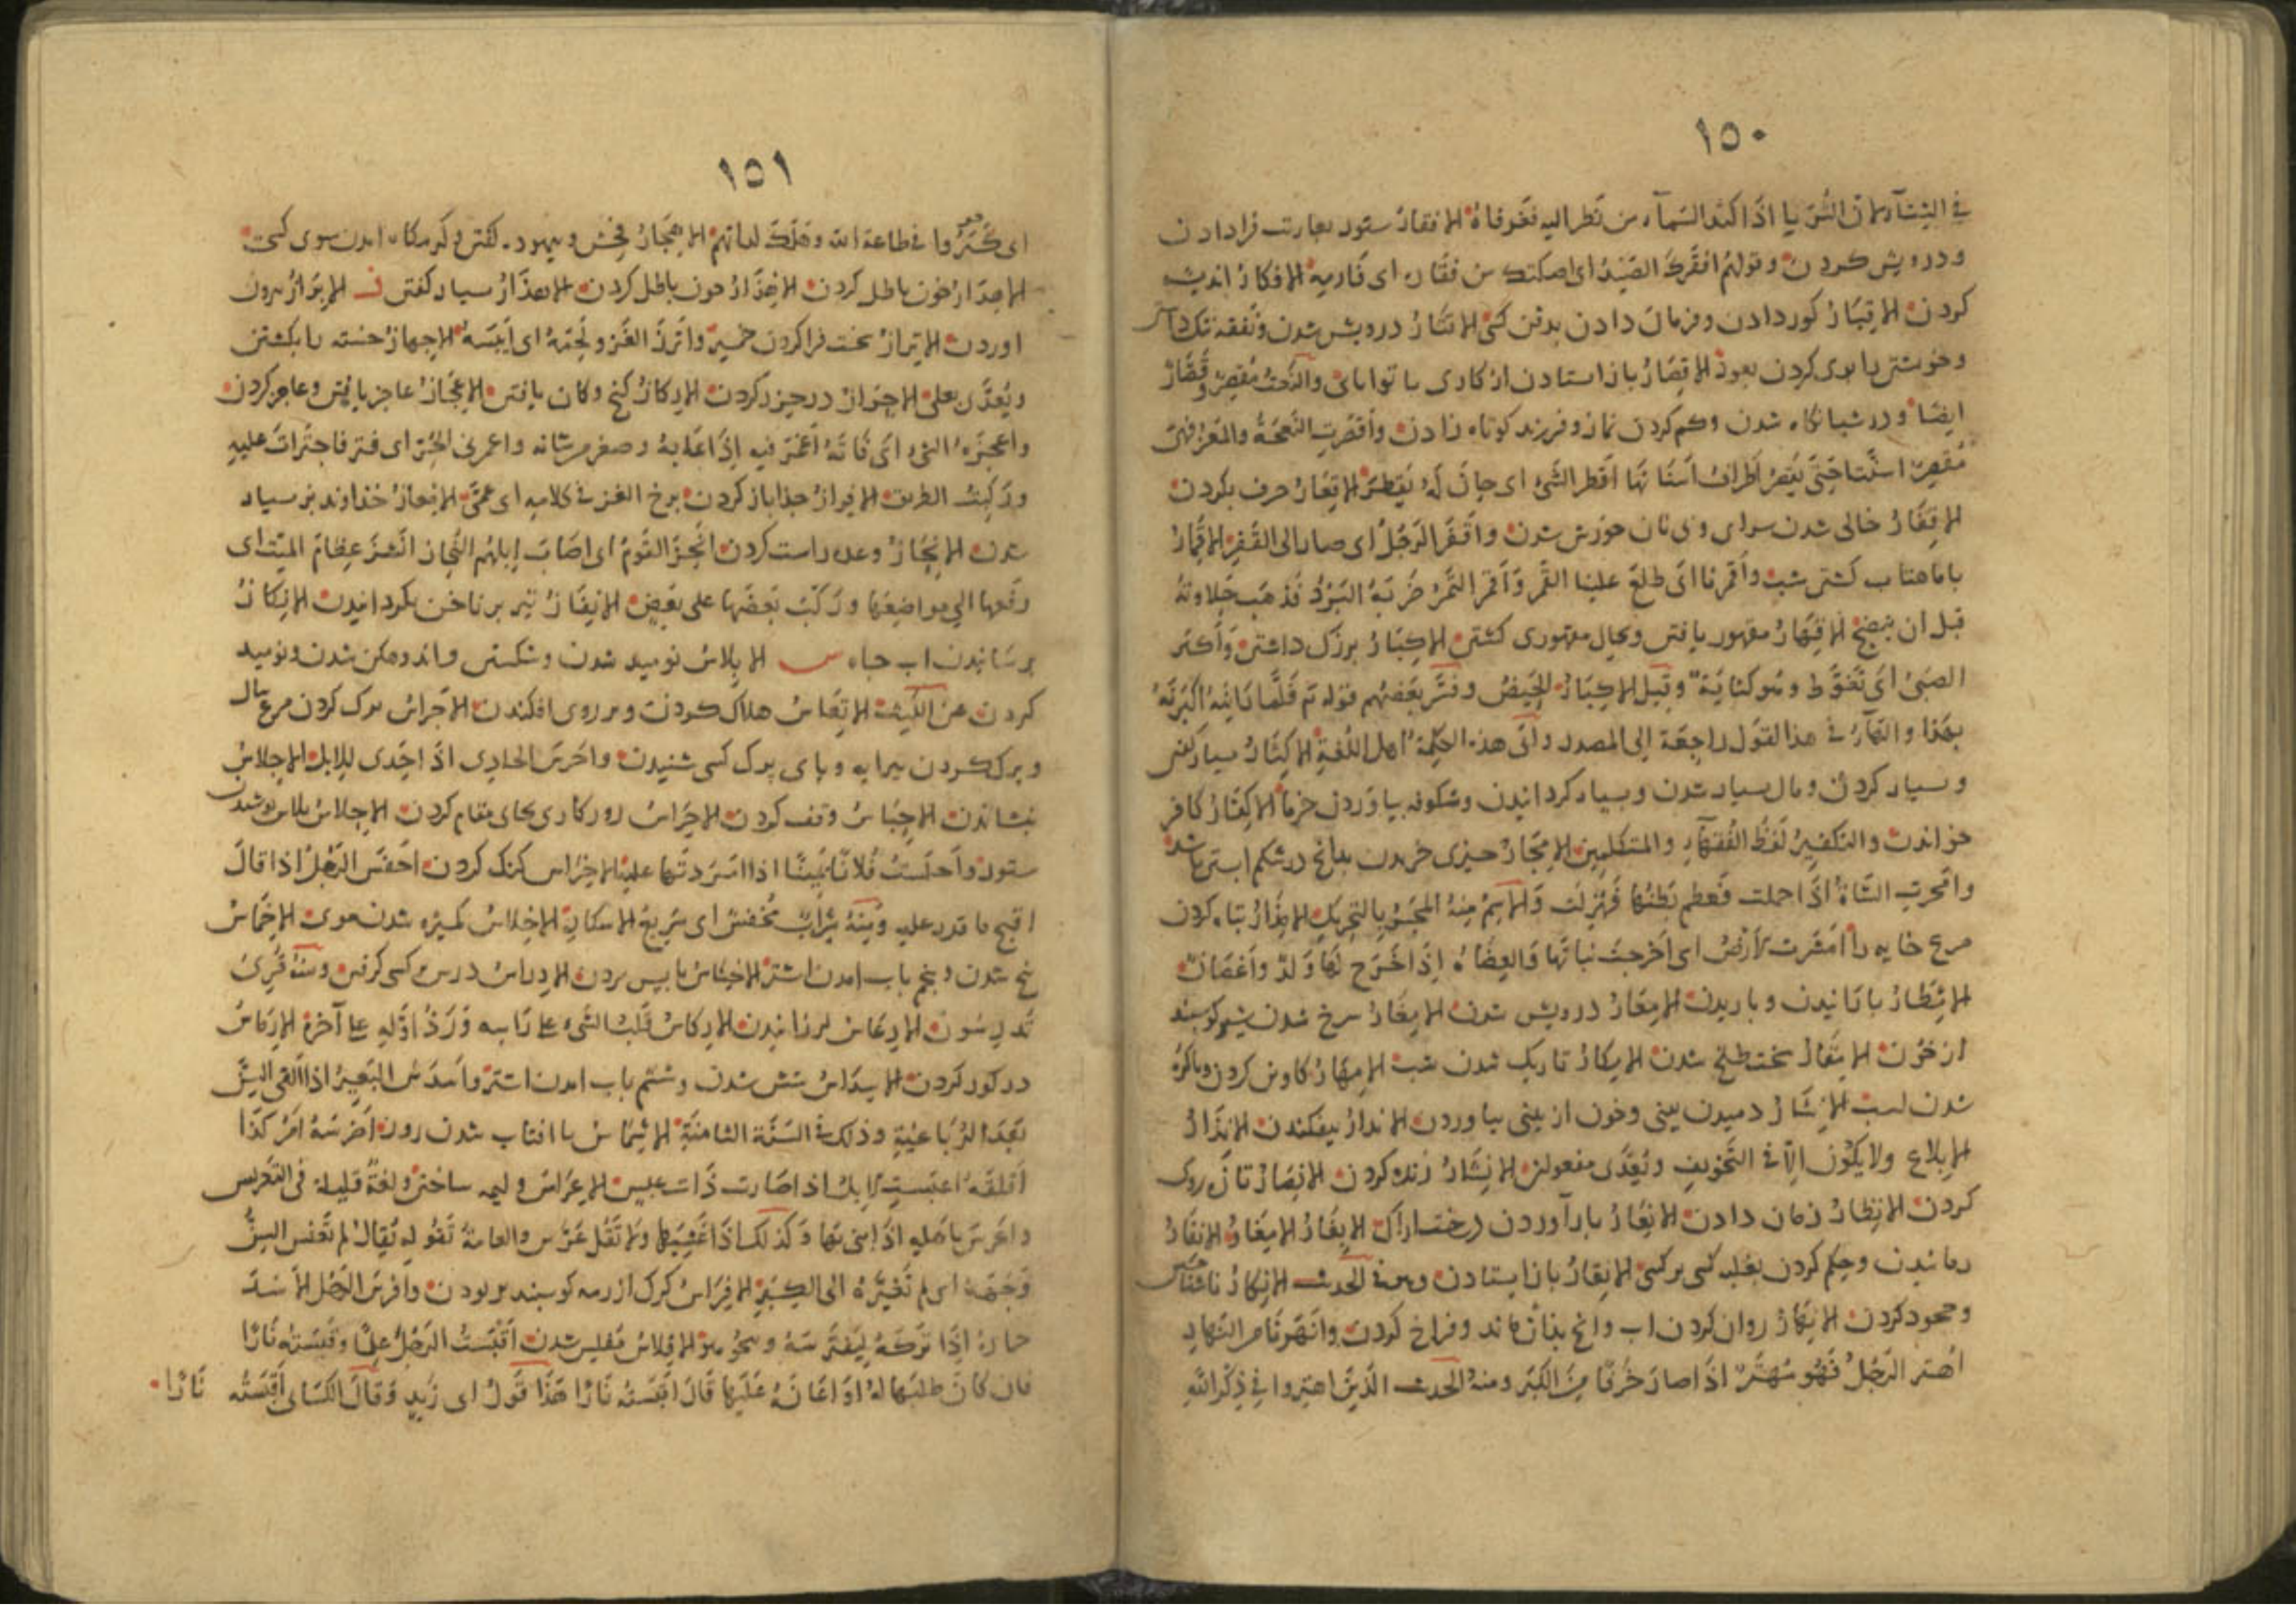 ١٥٠
في الشتاء لان الثريا اذا كبد السماء من نظر اليه فغرفاه الافقار ستور بعاريت فرا دادن
ودرويش كردن وقولهم افقرك الصيد اى امكنك من فقاره اى فارمه الافكار انديشه
كردن الاقبار كور دادن وفرمان دادن بدفن كسى الاقتار درويش شدن ونفقه تنك داشتن
وخويشتن را بوى كردن بعود الاقصار باز استادن از كارى با توانائى والنعت مقصر
ايضا ودر شبانكاه شدن وكم كردن نماز وفرزند كوتاه زادن واقصرت النعجة والمعز فهى
مقصر اسنتا حتى يقصر اطراف اسنانها اقطر الشئ اى حان له يقطر الاقعار حرف بكردن
الاقفار خالى شدن سراى وبى نان خورش شدن واقفر الرجل اى صار الى القفر الاقمار
با ماهتاب كشتن شب واقمرنا اى طلع علينا القمر واقمر التمر ضربه البرد فذهب حلاوته
قبل ان ينضج الاقهار مقهور يافتن وبحال مقهورى كشتن الاكبار بزرك داشتن واكبر
الصبى اى تغوط وهو كناية وقيل الاكبار الحيض وفسر بعضهم قوله تع فلما راينه اكبرنه
بهذا والهاء فى هذا القول راجعة الى المصدر وابى هذه الكلمة اهل اللغة الاكثار بسيار كفتن
وبسيار كردن ومال بسيار شدن وبسيار كردانيدن وشكوفه بياوردن خرما الاكفار كافر
خواندن والتكفير لفظ الفقهاء والمتكلمين الامجار چيزى خريدن بدانچ در شكم اشتر باشد
وامجرت الشاة اذا حملت فعظم بطنها فهزلت والاسم منه المجر بالتحريك الامذار تباه كردن
مرغ خايه را امشرت الارض اى اخرجت نباتها والعضاه اذا اخرج لها ولد واغصان
الامطار بارانيدن وباريدن الامعار درويش شدن الامغار سرخ شدن شير كوسبند
از خون الامقار سخت طلخ شدن الامكار تاريك شدن شب الامهار كاوين كردن وباكره
شدن اسب الانثار دميدن بينى وخون از بينى بياوردن الاندار بيفكندن الانذار
الابلاغ ولا يكون الا فى التخويف ويعدى بمفعولين الانشار زنده كردن الانضار تازه روى
كردن الانظار زمان دادن الانعار بار آوردن درخت اراك الانغار الامغار الانفار
رمانيدن وحكم كردن بغلبه كسى بر كسى الانقار باز ايستادن ومنه الحديث الانكار ناشناختن
وجحود كردن الانهار روان كردن اب وانچ بدان ماند وفراخ كردن وانهرنا من النهار
اهتر الرجل فهو مهتر اذا صار خرفا من الكبر ومنه الحديث الذين اهتروا فى ذكر الله
١٥١
اى كبروا فى طاعة الله وهلك لداتهم الاهجار فحش وبيهوده كفتن
الاهدار خون باطل كردن الاهذار خون باطل كردن الاهذار بسيار كفتن ز الابراز برون
اوردن الاتراز سخت فرا كردن خمير واترز الغز ولحمه اى ايبسه الاجهاز خسته را بكشتن
ويعدى بعلى الاحراز در حرز كردن الاركاز كنج وكان يافتن الاعجاز عاجز يافتن وعاجز كردن
واعجزه الشئ اى فاته اغمز فيه اذا عابه وصغر من شانه واغمزنى الحر اى فتر فاجترات عليه
وركبت الطريق الافراز جدا باز كردن برخ الغز فى كلامه اى عمى الامعاز خداوند بز بسيار
شدن الانجاز وعده راست كردن انجز القوم اى اصاب ابلهم النحاز انشز عظام الميت اى
رفعها الى مواضعها وركب بعضها على بعض الانفاز تير بر ناخن بكردانيدن الانكاز
برسانيدن اب چاه س الابلاس نوميد شدن وشكستن واندوهكن شدن ونوميد
كردن عن الكيف الاتعاس هلاك كردن وبر روى افكندن الاجراس
وبرك كردن بيرايه وباى برك كسى شنيدن واجرس الحادى اذا احدى للابل الاجلاس
بنشاندن الاحباس وقف كردن الاحراس روركارى بجاى مقام كردن الاحلاس بلاس پوشيدن
ستور واحلست فلانا يمينا اذا امررتها عليه الاخراس كنك كردن اخفس الرجل اذا قال
اقبح ما قدر عليه ومنه شراب مخفس اى سريع الاسكار الاخلاس كميزه شدن موى الاخماس
پنج شدن وپنجم باب امدن اشتر الاخناس باپس بردن الادراس درس كسى كرفتن ومنه قرئ
تدرسون الارعاس لرزانيدن الاركاس قلب الشئ على راسه ورد اوله على آخره الارماس
در كور كردن الاسداس شش شدن وششم باب امدن اشتر واسدس البعير اذا القى السن
بعد الرباعية وذلك فى السنة الثامنة الاشماس با افتاب شدن روز اضرسه امر كذا
اقلقه اعبست الابل اذا صارت ذات عبس الاعراس وليمه ساختن ولغة قليلة فى التعريس
واعرس باهله اذا بنى بها وكذلك اذا غشيها ولا تقل عرس والعامة تقوله يقال لم تعنس السن
وجهه اى لم تغيره الى الكبر الافراس كرك از رمه كوسبند بربودن وافرس الرجل الاسد
حماره اذا تركه ليفترسه وينجو هو الافلاس مفلس شدن اقبست الرجل علما وقبسته نارا
فان كان طلبها له او اعانه عليها قال اقبسته نارا هذا قول ابى زيد وقال الكسائى اقبسته نارا